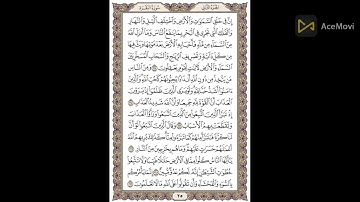 AceMovi
الجزء الثاني سورة البقرة
إِنَّ فِي خَلْقِ السَّمَٰوَٰتِ وَالْأَرْضِ وَاخْتِلَٰفِ اللَّيْلِ وَالنَّهَارِ
وَالْفُلْكِ الَّتِي تَجْرِي فِي الْبَحْرِ بِمَا يَنفَعُ النَّاسَ وَمَا أَنزَلَ اللَّهُ
مِنَ السَّمَاءِ مِن مَّاءٍ فَأَحْيَا بِهِ الْأَرْضَ بَعْدَ مَوْتِهَا وَبَثَّ فِيهَا
مِن كُلِّ دَابَّةٍ وَتَصْرِيفِ الرِّيَٰحِ وَالسَّحَابِ الْمُسَخَّرِ بَيْنَ
السَّمَاءِ وَالْأَرْضِ لَءَايَٰتٍ لِّقَوْمٍ يَعْقِلُونَ ١٦٤ وَمِنَ النَّاسِ
مَن يَتَّخِذُ مِن دُونِ اللَّهِ أَندَادًا يُحِبُّونَهُمْ كَحُبِّ اللَّهِ وَالَّذِينَ
ءَامَنُوا أَشَدُّ حُبًّا لِّلَّهِ وَلَوْ يَرَى الَّذِينَ ظَلَمُوا إِذْ يَرَوْنَ
الْعَذَابَ أَنَّ الْقُوَّةَ لِلَّهِ جَمِيعًا وَأَنَّ اللَّهَ شَدِيدُ الْعَذَابِ ١٦٥
إِذْ تَبَرَّأَ الَّذِينَ اتُّبِعُوا مِنَ الَّذِينَ اتَّبَعُوا وَرَأَوُا الْعَذَابَ
وَتَقَطَّعَتْ بِهِمُ الْأَسْبَابُ ١٦٦ وَقَالَ الَّذِينَ اتَّبَعُوا لَوْ أَنَّ
لَنَا كَرَّةً فَنَتَبَرَّأَ مِنْهُمْ كَمَا تَبَرَّءُوا مِنَّا كَذَٰلِكَ يُرِيهِمُ اللَّهُ
أَعْمَٰلَهُمْ حَسَرَٰتٍ عَلَيْهِمْ وَمَا هُم بِخَٰرِجِينَ مِنَ النَّارِ ١٦٧
يَٰأَيُّهَا النَّاسُ كُلُوا مِمَّا فِي الْأَرْضِ حَلَٰلًا طَيِّبًا وَلَا تَتَّبِعُوا
خُطُوَٰتِ الشَّيْطَٰنِ إِنَّهُ لَكُمْ عَدُوٌّ مُّبِينٌ ١٦٨ إِنَّمَا يَأْمُرُكُم
بِالسُّوءِ وَالْفَحْشَاءِ وَأَن تَقُولُوا عَلَى اللَّهِ مَا لَا تَعْلَمُونَ ١٦٩
٢٥